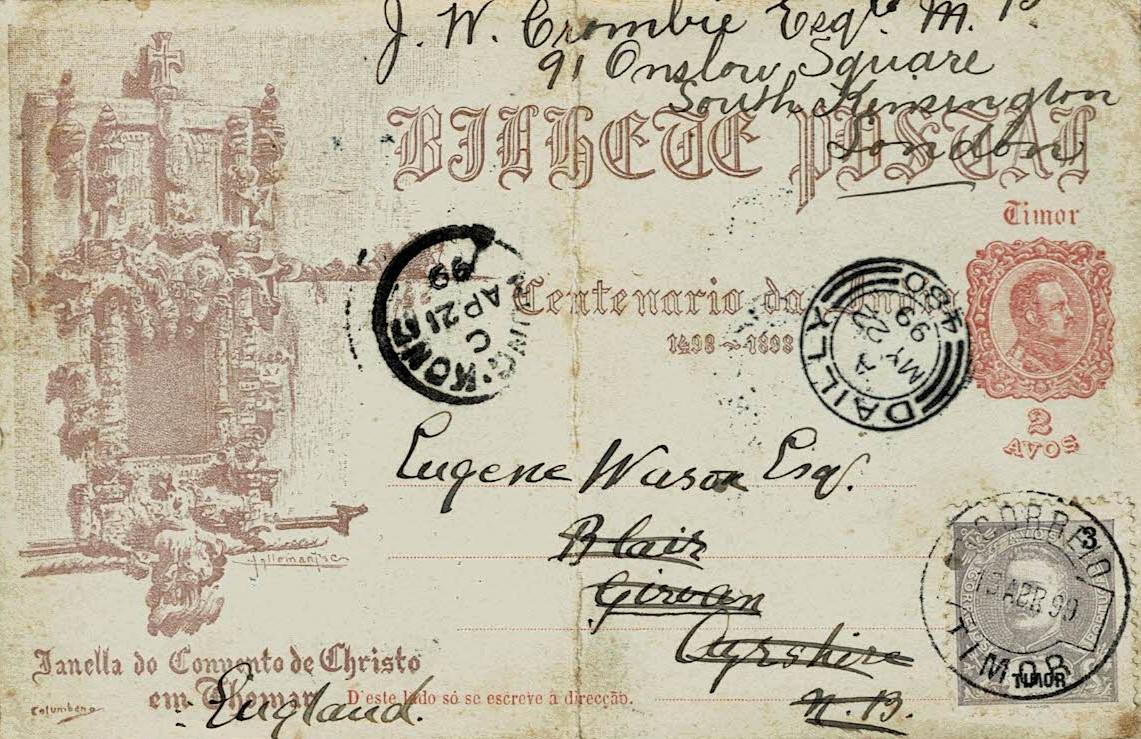 J. W. Crombie Esqre M. P
91 Onslow Square
South Kensington
London
BILHETE POSTAL
Timor
Centenario da
1498 ~ 1898
2
AVOS
HONG KONG
C
AP 21
99
DAILLY
A
MY 22
99
480
Eugene Wason Esq.
Blair
Girvan
Ayrshire
N. B.
England.
CORREIO
13 ABR 99
TIMOR
3
TIMOR
Janella do Convento de Christo
em Thomar
D'este lado só se escreve a direcção.
Columbano